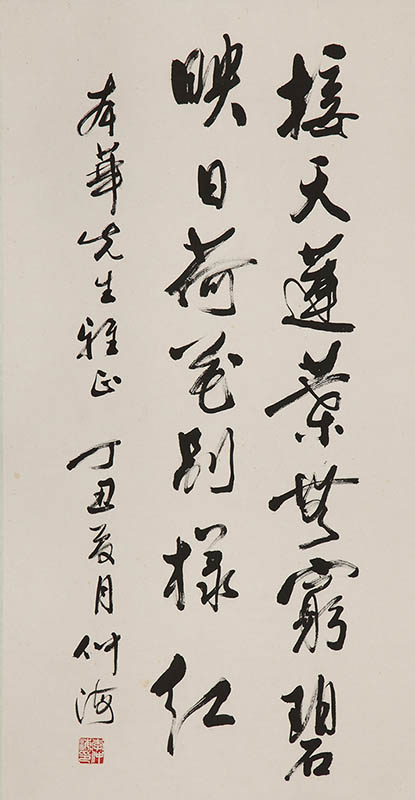 接天蓮葉無窮碧
映日荷花別樣紅
本華先生雅正 丁丑夏月 仲海